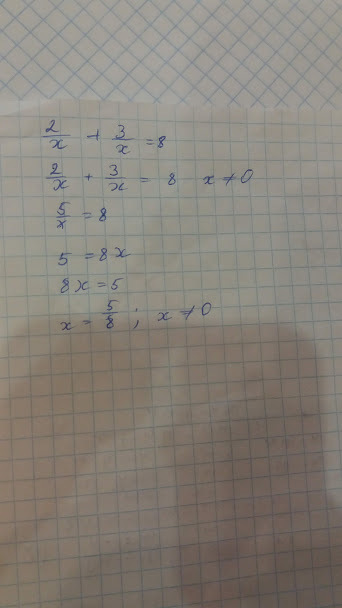 2/x + 3/x = 8
2/x + 3/x = 8 x ≠ 0
5/x = 8
5 = 8x
8x = 5
x = 5/8 ; x ≠ 0